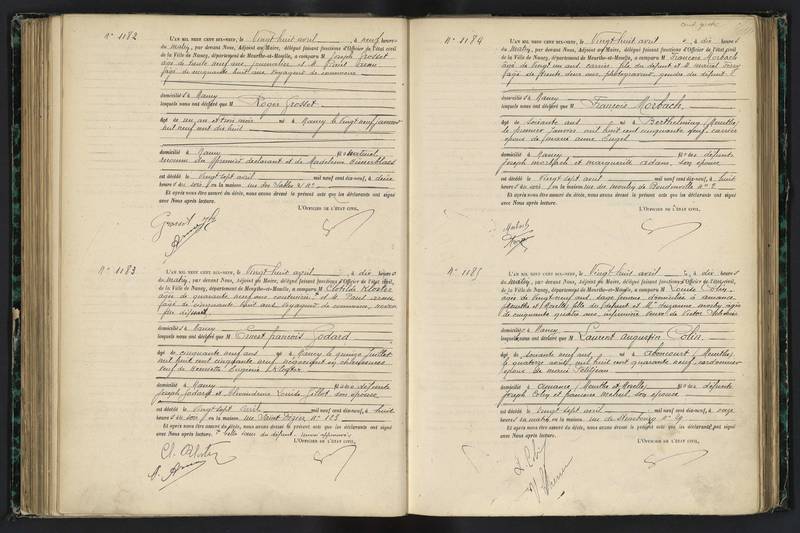 N° 1182
L'AN MIL NEUF CENT DIX-NEUF, le Vingt huit avril, à neuf heures
du matin, par devant Nous, Adjoint au Maire, délégué faisant fonctions d'Officier de l'état civil
de la Ville de Nancy, département de Meurthe-et-Moselle, a comparu M Joseph Grosset
âgé de trente neuf ans, journalier et M
âgé de cinquante huit ans voyageur de commerce
domiciliés à Nancy
lesquels nous ont déclaré que M Roger Grosset
âgé de un an et trois mois né à Nancy le vingt neuf janvier
mil neuf cent dix huit
domicilié à Nancy fils naturel
reconnu du premier déclarant et de Madeleine
est décédé le vingt sept avril mil neuf cent dix-neuf, à
heures du soir en la maison rue des Sables
Et après nous être assuré du décès, nous avons dressé le présent acte que les déclarants ont signé
avec Nous après lecture.
L'OFFICIER DE L'ÉTAT CIVIL,
N° 1183
L'AN MIL NEUF CENT DIX-NEUF, le Vingt huit avril, à dix heures
du matin, par devant Nous, Adjoint au Maire, délégué faisant fonctions d'Officier de l'état civil,
de la Ville de Nancy, département de Meurthe-et-Moselle, a comparu M Clotilde Kloster
âgée de quarante neuf ans couturière et M Paul
âgé de cinquante huit ans voyageur de commerce,
domiciliés à Nancy
lesquels nous ont déclaré que M Ernest François Godard
âgé de cinquante neuf ans né à Nancy le quinze juillet
mil huit cent cinquante neuf négociant en chaussures
veuf de Henriette Eugénie Kloster
domicilié à Nancy fils des défunts
Joseph Godard et Louise Jillot son épouse
est décédé le Vingt sept avril mil neuf cent dix-neuf, à huit
heures du soir en la maison rue Saint Dizier N° 123
Et après nous être assuré du décès, nous avons dressé le présent acte que les déclarants ont signé
avec Nous après lecture. belle sœur du défunt.
L'OFFICIER DE L'ÉTAT CIVIL,
N° 1184
L'AN MIL NEUF CENT DIX-NEUF, le Vingt huit avril, à dix heures
du matin, par devant Nous, Adjoint au Maire, délégué faisant fonctions d'Officier de l'état civil
de la Ville de Nancy, département de Meurthe-et-Moselle, a comparu M François Morbach
âgé de vingt un ans carrier, fils du défunt et M
âgé de trente deux ans, photograveur, gendre du défunt
domiciliés à Nancy
lesquels nous ont déclaré que M François Morbach,
âgé de soixante ans né à Berthelming (Meurthe)
le premier janvier mil huit cent cinquante neuf, carrier
époux de
domicilié à Nancy fils des défunts
Joseph Morbach et Marguerite Adam, son épouse
est décédé le Vingt sept avril mil neuf cent dix-neuf, à huit
heures du soir en la maison rue du moulin de Boudonville n° 2
Et après nous être assuré du décès, nous avons dressé le présent acte que les déclarants ont signé
avec Nous après lecture.
L'OFFICIER DE L'ÉTAT CIVIL,
N° 1185
L'AN MIL NEUF CENT DIX-NEUF, le Vingt huit avril, à dix heures
du matin, par devant Nous, Adjoint au Maire, délégué faisant fonctions d'Officier de l'état civil
de la Ville de Nancy, département de Meurthe-et-Moselle, a comparu M Louise Colin,
âgée de vingt neuf ans, sage femme, domiciliée à Amance
(Meurthe et Moselle) fille du défunt et Me Suzanne
de cinquante quatre ans, infirmière veuve de Victor
domiciliée à Nancy
lesquels nous ont déclaré que M Laurent Augustin Colin,
âgé de soixante neuf ans, né à Aboncourt (Meurthe)
le quatorze août mil huit cent quarante neuf, cordonnier
époux de Marie Petitjean
domicilié à Amance (Meurthe et Moselle) fils des défunts
Joseph Colin et Françoise son épouse
est décédé le Vingt sept avril mil neuf cent dix-neuf, à onze
heures du matin en la maison rue de Strasbourg N° 29
Et après nous être assuré du décès, nous avons dressé le présent acte que les déclarants ont signé
avec Nous après lecture.
L'OFFICIER DE L'ÉTAT CIVIL,